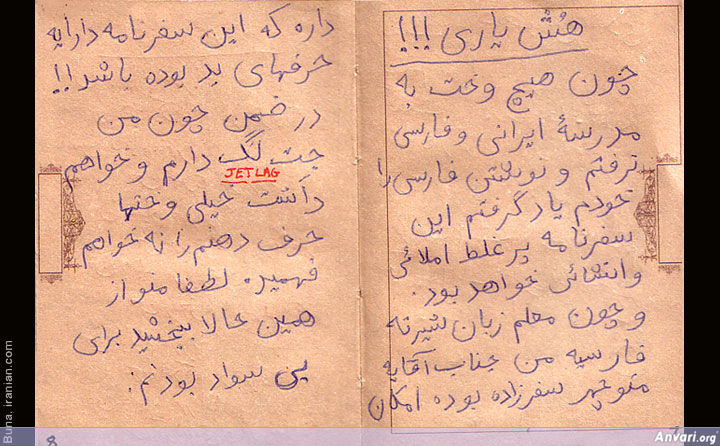 هُش یاری !!!
چون هیچ وخت به
مدرسهٔ ایرانی و فارسی
نرفتم و نوشتن فارسی را
خودم یاد گرفتم این
سفرنامه پر غلط املائی
خواهد بود.
و چون معلم زبان شیرنه
فارسیه من جناب آقایه
منوچهر سفرزاده بوده امکان
داره که این سفرنامه دارایه
حرفهای بد بوده باشد!!
در ضمن چون من
جت لگ دارم و خواهم
JET LAG
داشت خیلی وختها
حرف دهنم را نه خواهم
فهمید. لطفا منو از
همین حالا ببخشید برای
بی سواد بودنم.
8
Buna, iranian.com
Anvari.org